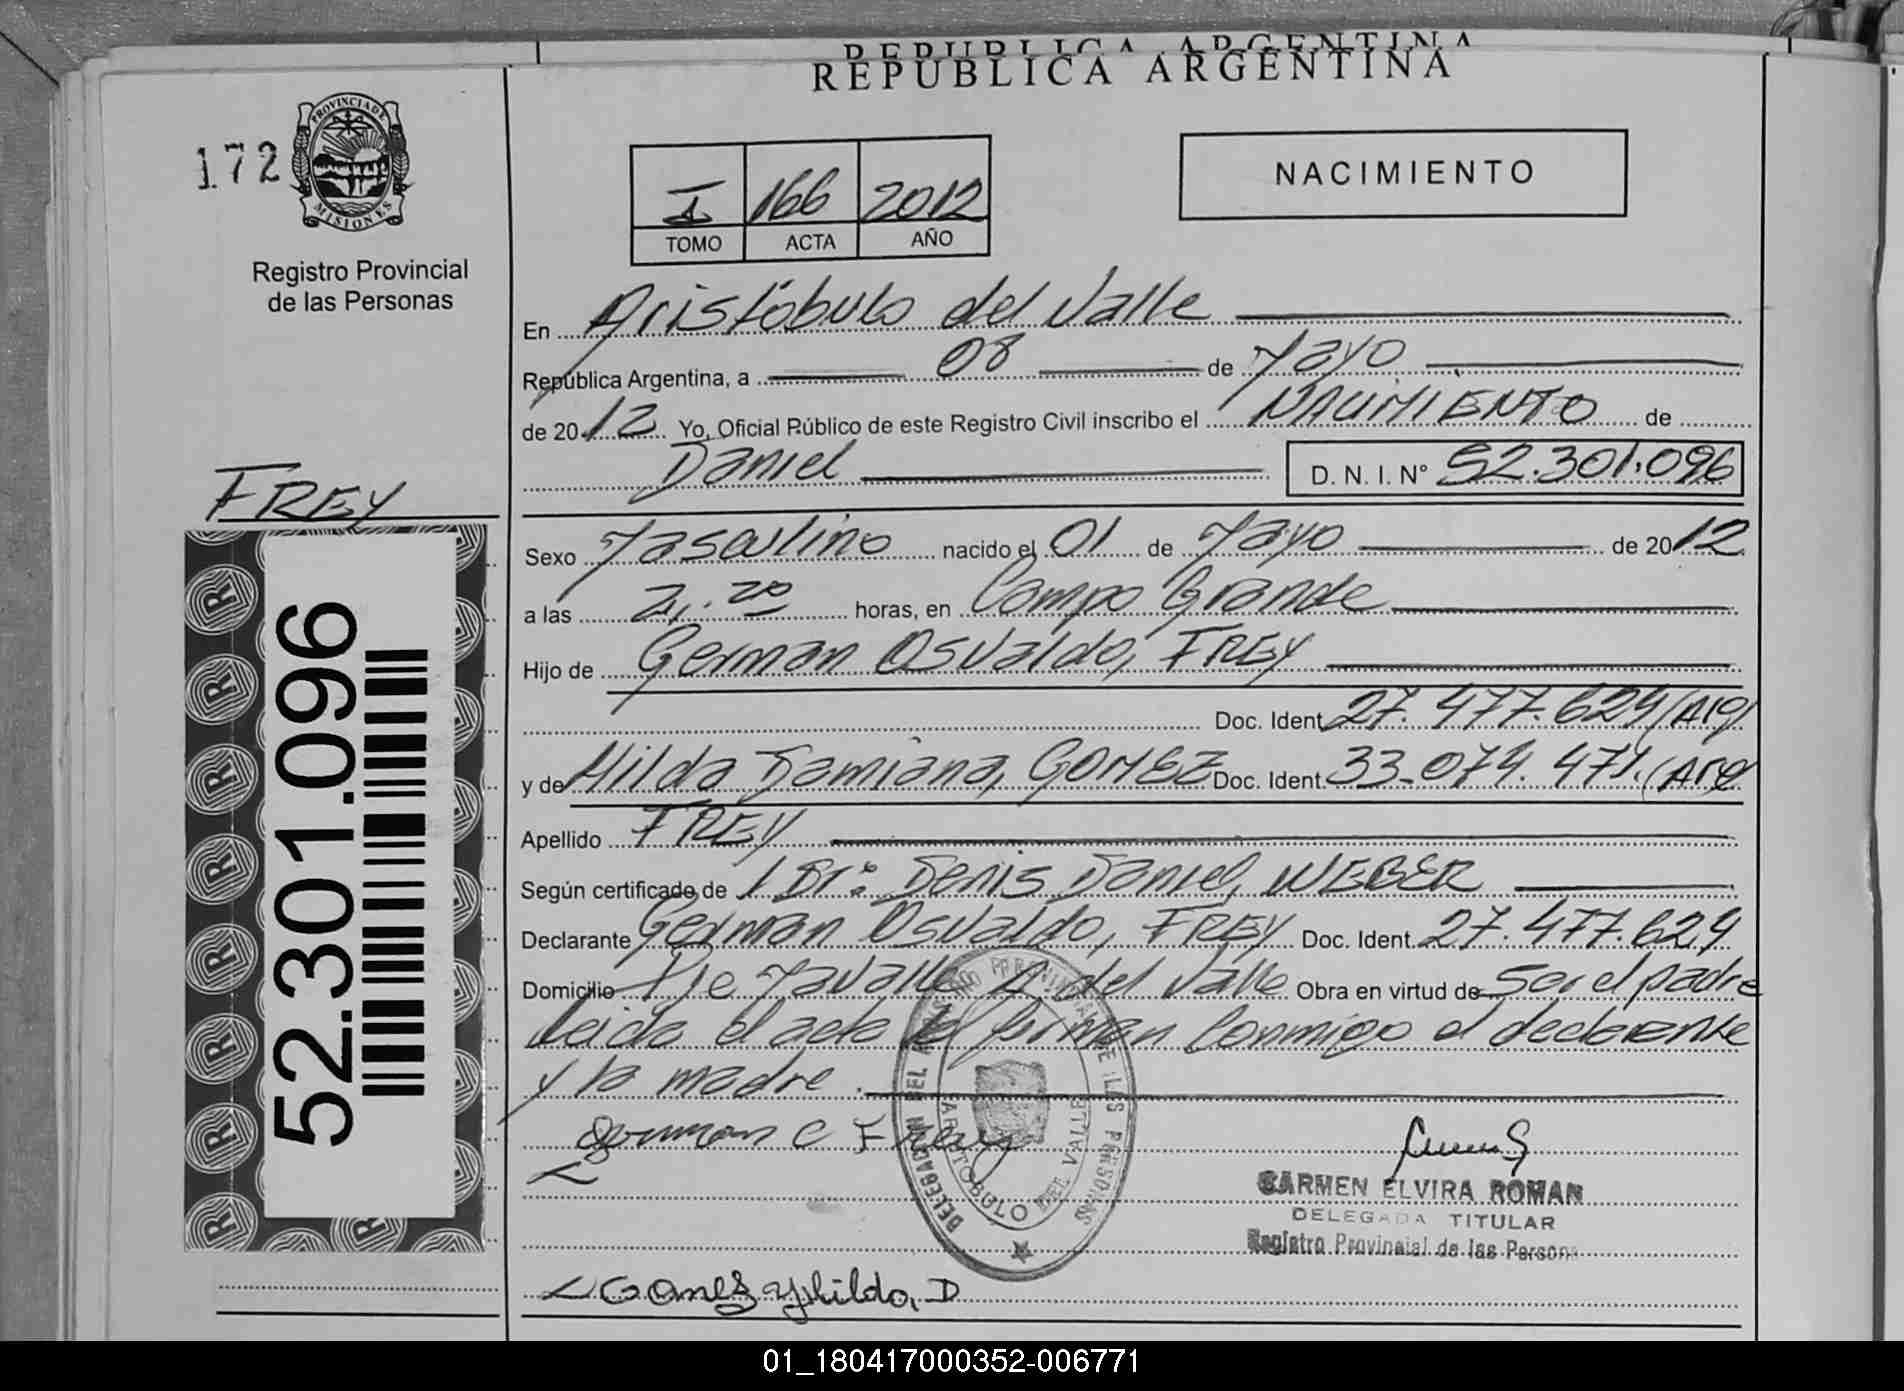 REPUBLICA ARGENTINA
REPUBLICA ARGENTINA
172
PROVINCIA DE MISIONES
Registro Provincial
de las Personas
I 166 2012
TOMO ACTA AÑO
NACIMIENTO
En Aristóbulo del Valle
República Argentina, a 08 de Mayo
de 2012 Yo, Oficial Público de este Registro Civil inscribo el NACIMIENTO de
Daniel D. N. I. N° 52.301.096
FREY
52.301.096
Sexo Masculino nacido el 01 de Mayo de 2012
a las horas, en Campo Grande
Hijo de German Osvaldo, FREY
Doc. Ident. 27.477.624 (Arg)
y de Hilda Damiana, GOMEZ Doc. Ident. 33.074.471. (Arg)
Apellido FREY
Según certificado de / Dr: Denis Daniel, WEBER
Declarante German Osvaldo, FREY Doc. Ident. 27.477.624
Domicilio A. del Valle Obra en virtud de Ser el padre
Leida el acta la firman Conmigo el declarante
y la madre.
German O Frey
DELEGACION DEL REGISTRO PROVINCIAL DE LAS PERSONAS
ARISTOBULO DEL VALLE
CARMEN ELVIRA ROMAN
DELEGADA TITULAR
Registro Provincial de las Persona
Gomez Hilda, D
01_180417000352-006771